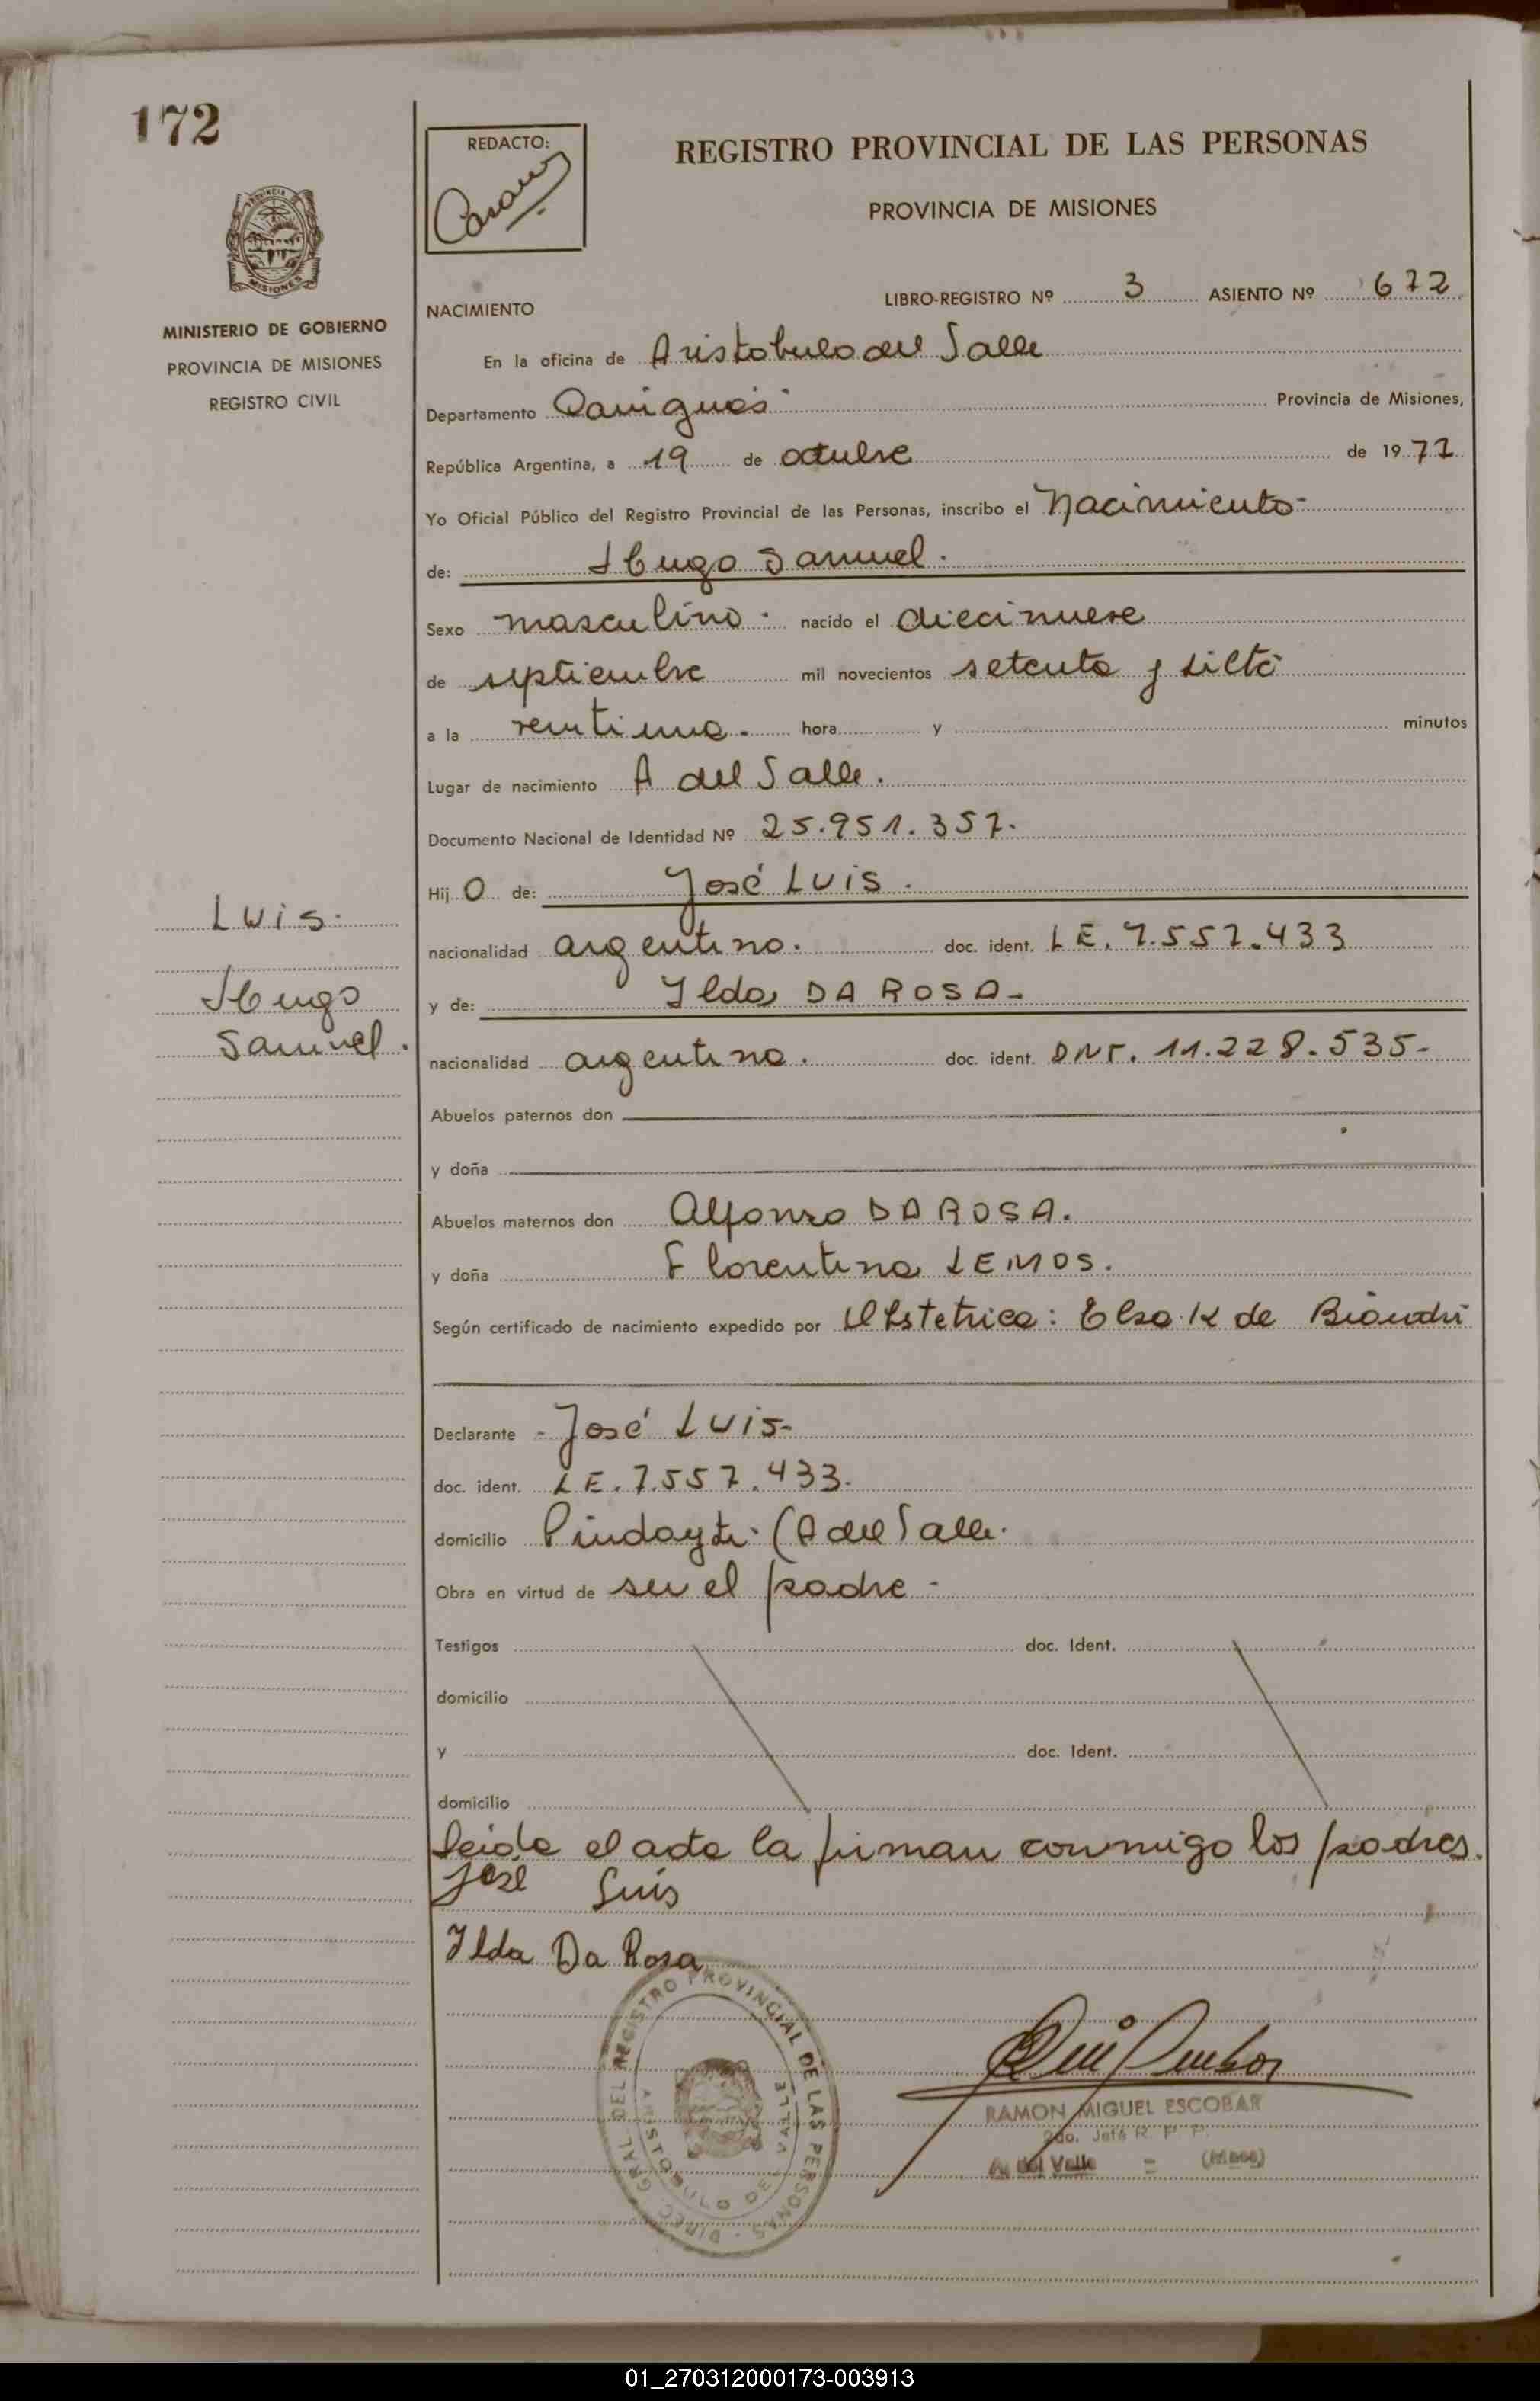 172
REDACTO:
REGISTRO PROVINCIAL DE LAS PERSONAS
PROVINCIA DE MISIONES
MISIONES
MINISTERIO DE GOBIERNO
PROVINCIA DE MISIONES
REGISTRO CIVIL
LIBRO-REGISTRO Nº 3 ASIENTO Nº 672
NACIMIENTO
En la oficina de Aristobulo del Valle
Departamento Cainguás Provincia de Misiones,
República Argentina, a 19 de octubre de 1977
Yo Oficial Público del Registro Provincial de las Personas, inscribo el Nacimiento-
de: Hugo Samuel.
Sexo masculino. nacido el diecinueve
de septiembre mil novecientos setenta y siete
a la veintiuna. hora y minutos
Lugar de nacimiento A del Valle.
Documento Nacional de Identidad Nº 25.951.357.
Hij o de: José LUIS.
Luis.
nacionalidad argentino. doc. ident. LE. 7.557.433
Hugo
y de: Ilda DA ROSA-
Samuel.
nacionalidad argentina. doc. ident. DNI. 11.228.535-
Abuelos paternos don
y doña
Abuelos maternos don Alfonso DA ROSA.
y doña Florentina LEMOS.
Según certificado de nacimiento expedido por Obstetrica: Elsa K de
Declarante - José LUIS-
doc. ident. LE. 7.557.433.
domicilio Pindayti. (A del Valle.
Obra en virtud de ser el padre -
Testigos doc. Ident.
domicilio
y doc. Ident.
domicilio
leida el acta la firman conmigo los padres.
José Luis
Ilda Da Rosa
DIREC. GRAL. DEL REGISTRO PROVINCIAL DE LAS PERSONAS
ARISTOBULO DEL VALLE
RAMON MIGUEL ESCOBAR
2do. Jefe R. P. P.
A. del Valle = (Mnes)
01_270312000173-003913